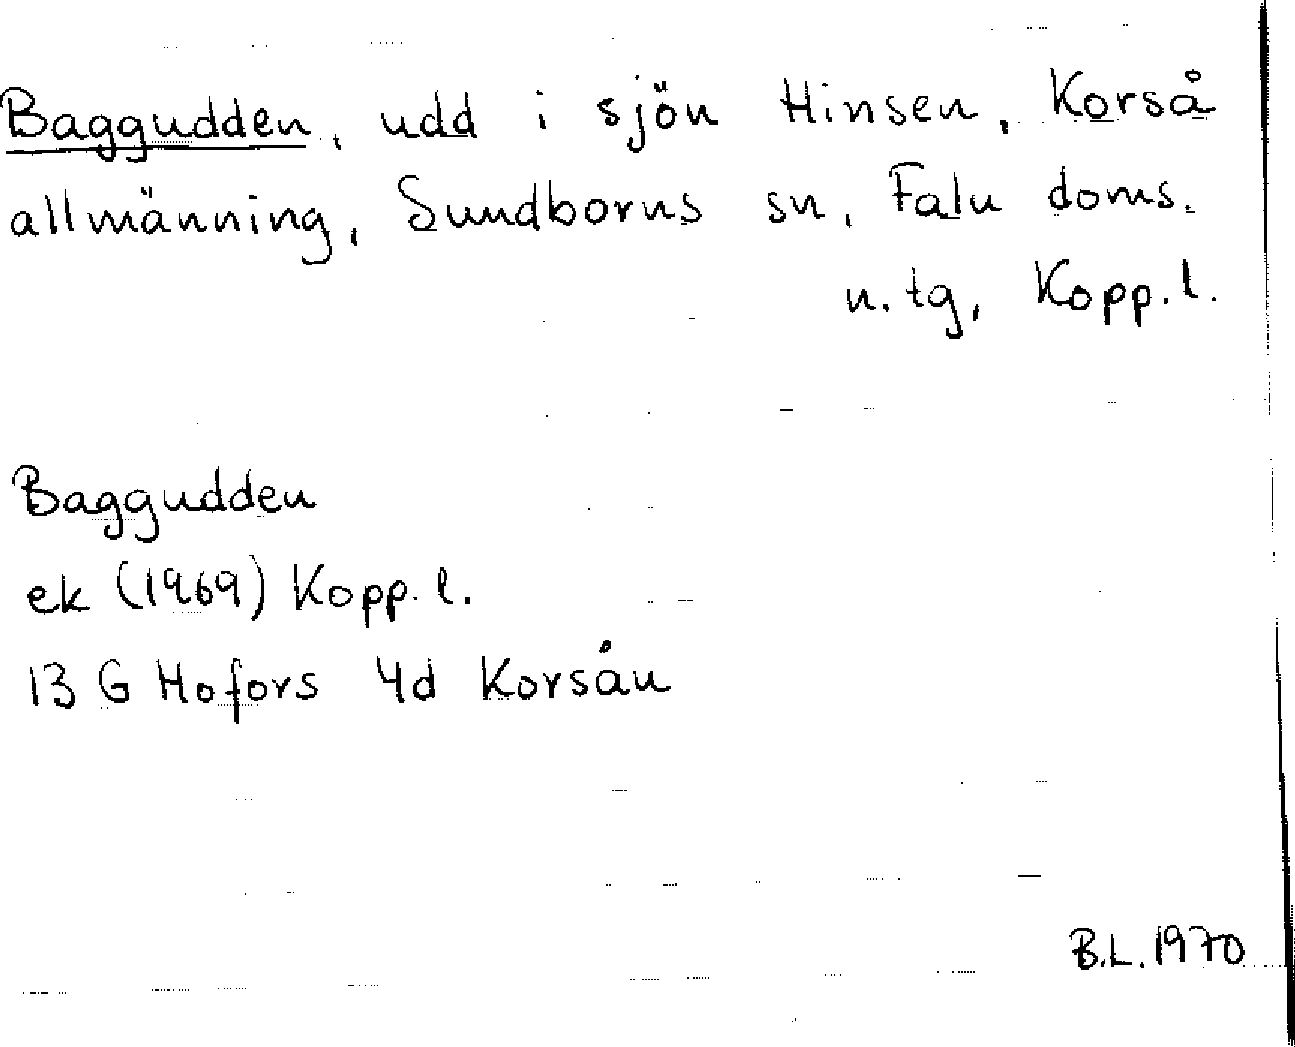 Baggudden, udd i sjön Hinsen, Korså
allmänning, Sundborns sn, Falu doms.
n. tg, Kopp. l.
Baggudden
ek (1969) Kopp. l.
13 G Hofors 4d Korsån
B.L. 1970